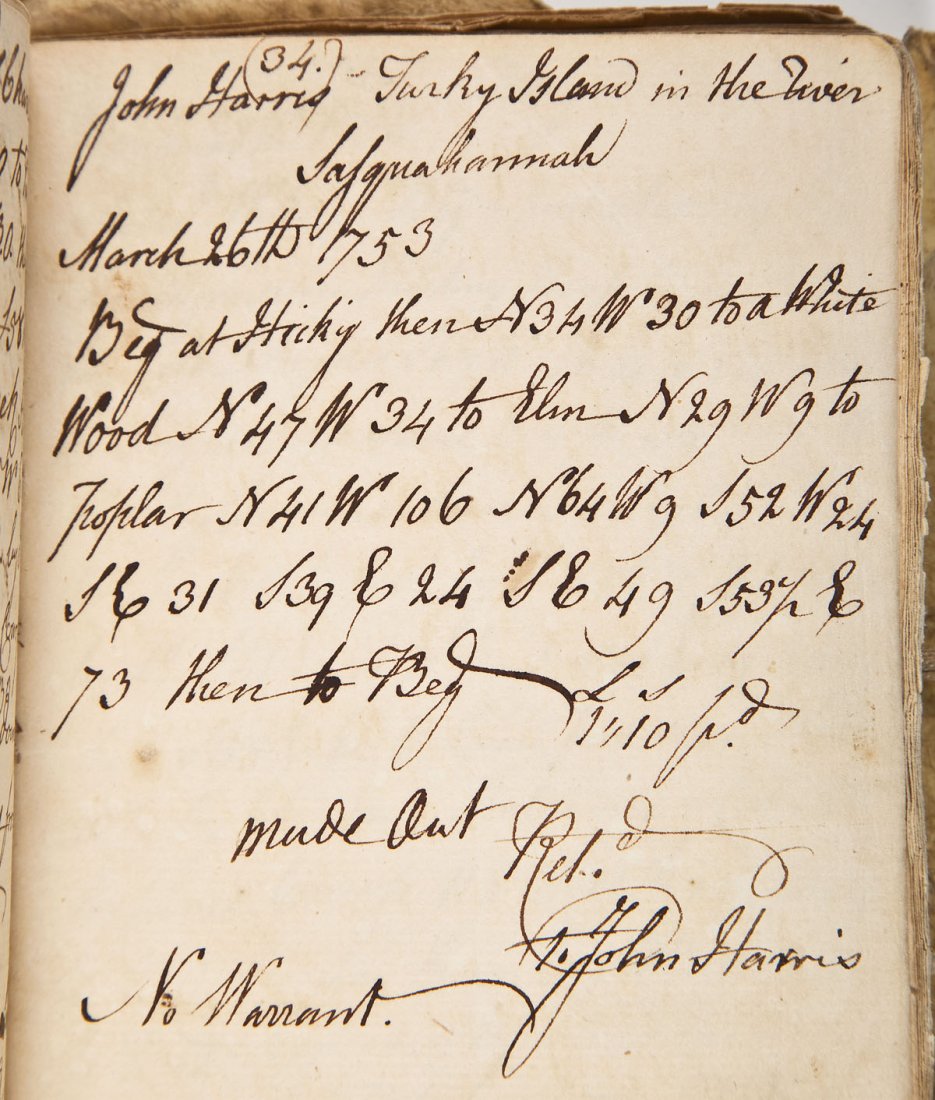 (34.)
John Harris - Turky Island in the River
Sasquahannah
March 26th 1753
Beg at Hicky then N34W 30 to a White
Wood N47W 34 to Elm N29W9 to
poplar N41W 106 N64W9 S52W24
SE 31 S39E24 SE 49 S53½E
73 then to Beg
£ s
1,,10 pd.
made Out Retd.
to John Harris
No Warrant.